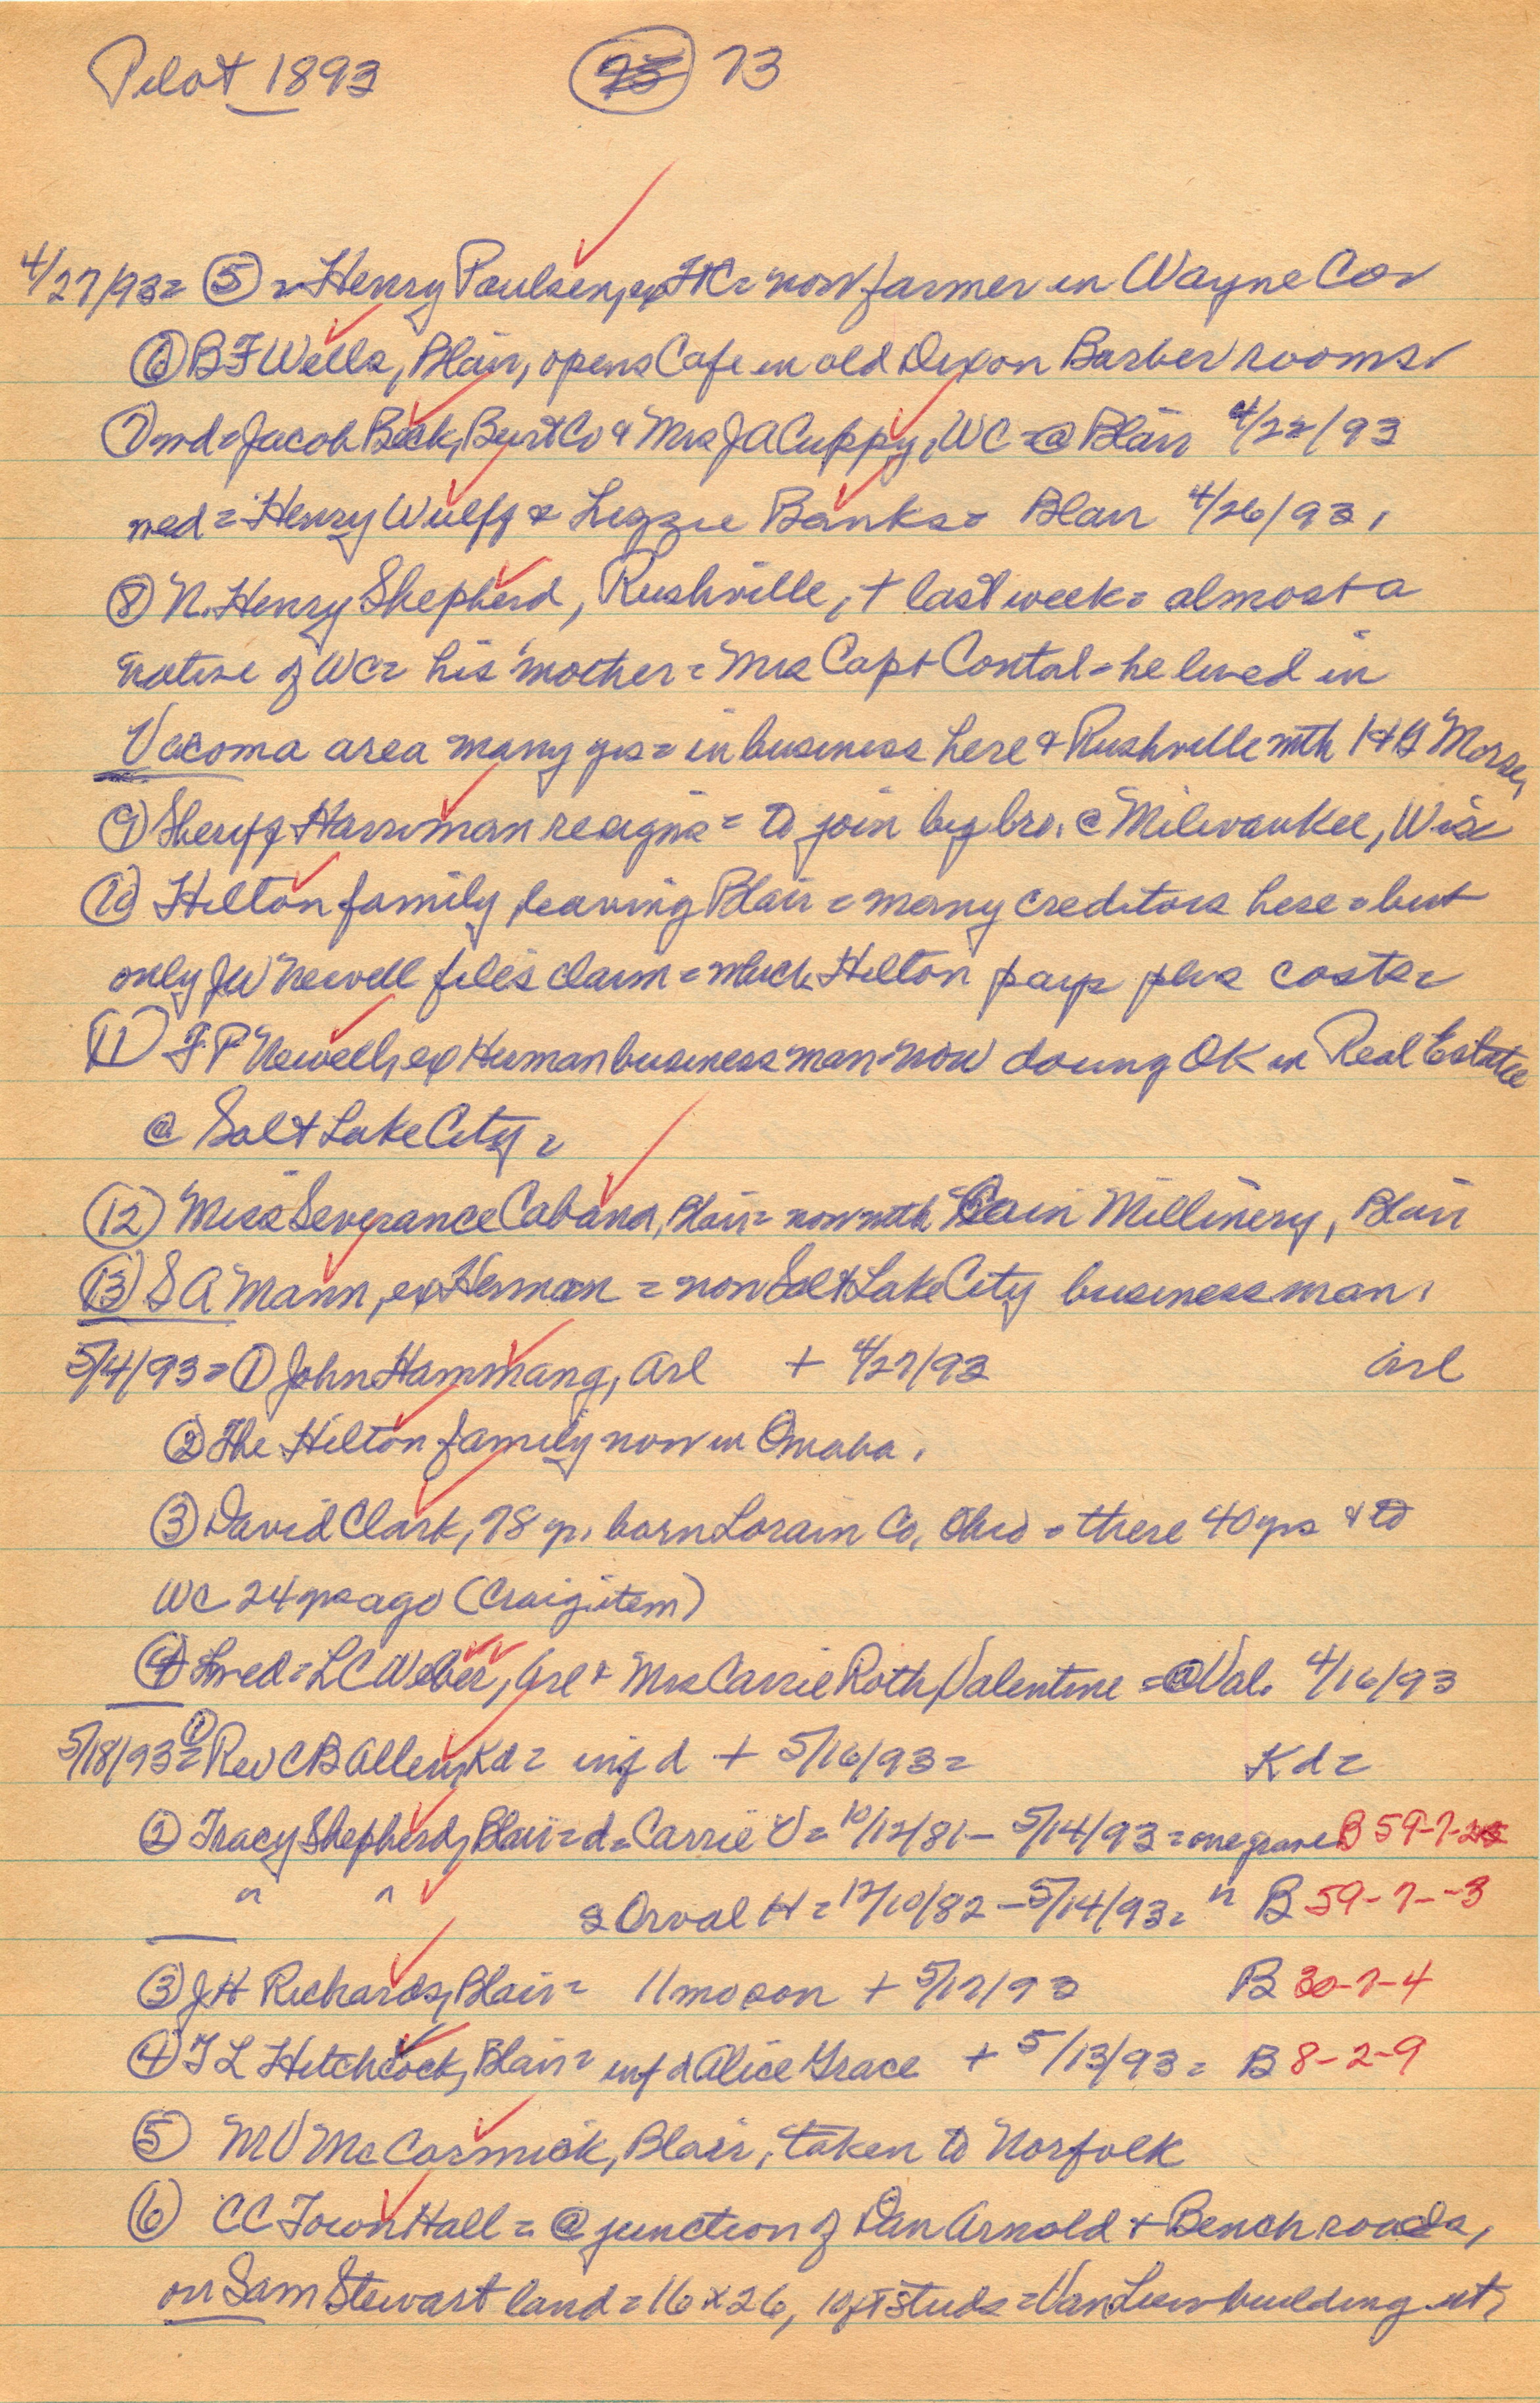 Pilot 1893 73
4/27/93= ⑤ = Henry Paulsen, ex FtC= now farmer in Wayne Co=
⑥ B F Wells, Blair, opens Cafe in old Dixon Barber rooms=
⑦ md= Jacob Beck, Burt Co & Mrs J A Cuppy, WC = @ Blair 4/22/93
med = Henry Wulff & Lizzie Banks= Blair 4/26/93.
⑧ N. Henry Shepherd, Rushville, + last week= almost a
native of WC= his mother = Mrs Capt Contal = he lived in
Vacoma area many yrs= in business here & Rushville with H G Morse,
⑨ Sheriff Harriman resigns = to join by bro. @ Milwaukee, Wis
⑩ Hilton family, leaving Blair = many creditors here = but
only J W Newell files claim = which Hilton pays plus costs=
⑪ F P Newell, ex Herman business man = now doing OK in Real Estate
@ Salt Lake City =
⑫ Miss Severance Cabana, Blair= now with Cain Millinery, Blair
⑬ S A Mann, ex Herman = now Salt Lake City business man.
5/4/93 = ① John Hammang, Arl + 4/27/93 Arl
② The Hilton family now in Omaha.
③ David Clark, 78 y. born Lorain Co, Ohio = there 40 yrs & to
WC 24 yrs ago (Craig item)
④ med = L C Weber, Arl & Mrs Carrie Roth, Valentine = @ Val. 4/16/93
5/18/93 = ① Rev C B Allen, Kd = inf d + 5/16/93 = Kd =
② Tracy Shepherd, Blair = d = Carrie V = 10/12/81 - 5/14/93 = one grave B 59-7-2
" " s Orval H = 12/10/82 - 5/14/93 = " B 59-7--3
③ J H Richards, Blair = 11 mo son + 5/17/93 B 30-7-4
④ T L Hitchcock, Blair = inf d Alice Grace + 5/13/93 = B 8-2-9
⑤ M V McCormick, Blair, taken to Norfolk
⑥ CC Town Hall = @ junction of Dan Arnold & Bench roads,
on Sam Stewart land = 16 x 26, 10 ft studs = Van Lew building it,